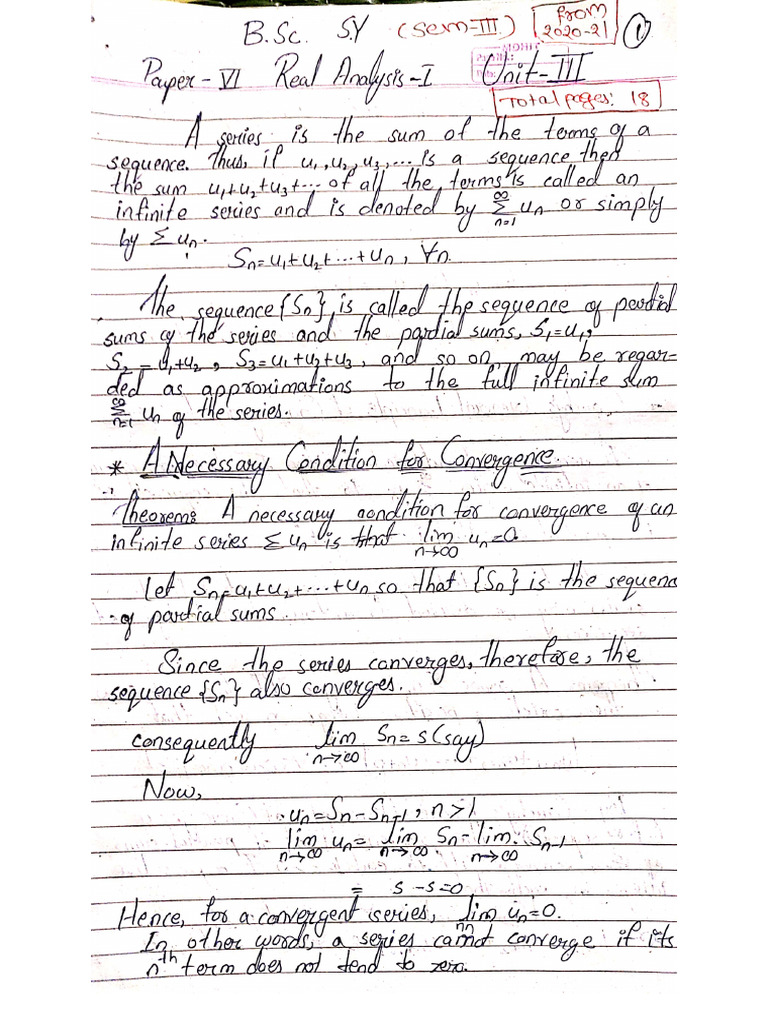 B.Sc. S.Y (Sem-III) from 2020-21 1
Paper-VI Real Analysis-I Unit-III
Total pages: 18
A series is the sum of the terms of a
sequence. Thus, if u₁, u₂, u₃, ... is a sequence then
the sum u₁+u₂+u₃+... of all the terms is called an
infinite series and is denoted by ∑_{n=1}^{∞} uₙ or simply
by Σ uₙ.
Sₙ=u₁+u₂+...+uₙ, ∀n.
The sequence {Sₙ}, is called the sequence of partial
sums of the series and the partial sums, S₁=u₁,
S₂ = u₁+u₂, S₃=u₁+u₂+u₃, and so on, may be regar-
ded as approximations to the full infinite sum
∑_{n=1}^{∞} uₙ of the series.
* A Necessary Condition for Convergence.
Theorem: A necessary condition for convergence of an
infinite series Σ uₙ is that lim_{n→∞} uₙ=0.
Let Sₙ=u₁+u₂+...+uₙ so that {Sₙ} is the sequenc
of partial sums.
Since the series converges, therefore, the
sequence {Sₙ} also converges.
consequently lim_{n→∞} Sₙ=s (say)
Now,
uₙ=Sₙ-Sₙ₋₁, n>1
lim_{n→∞} uₙ= lim_{n→∞} Sₙ-lim_{n→∞} Sₙ₋₁
= s-s=0
Hence, for a convergent series, lim uₙ=0.
In other words, a series cannot converge if its
nth term does not tend to zero.